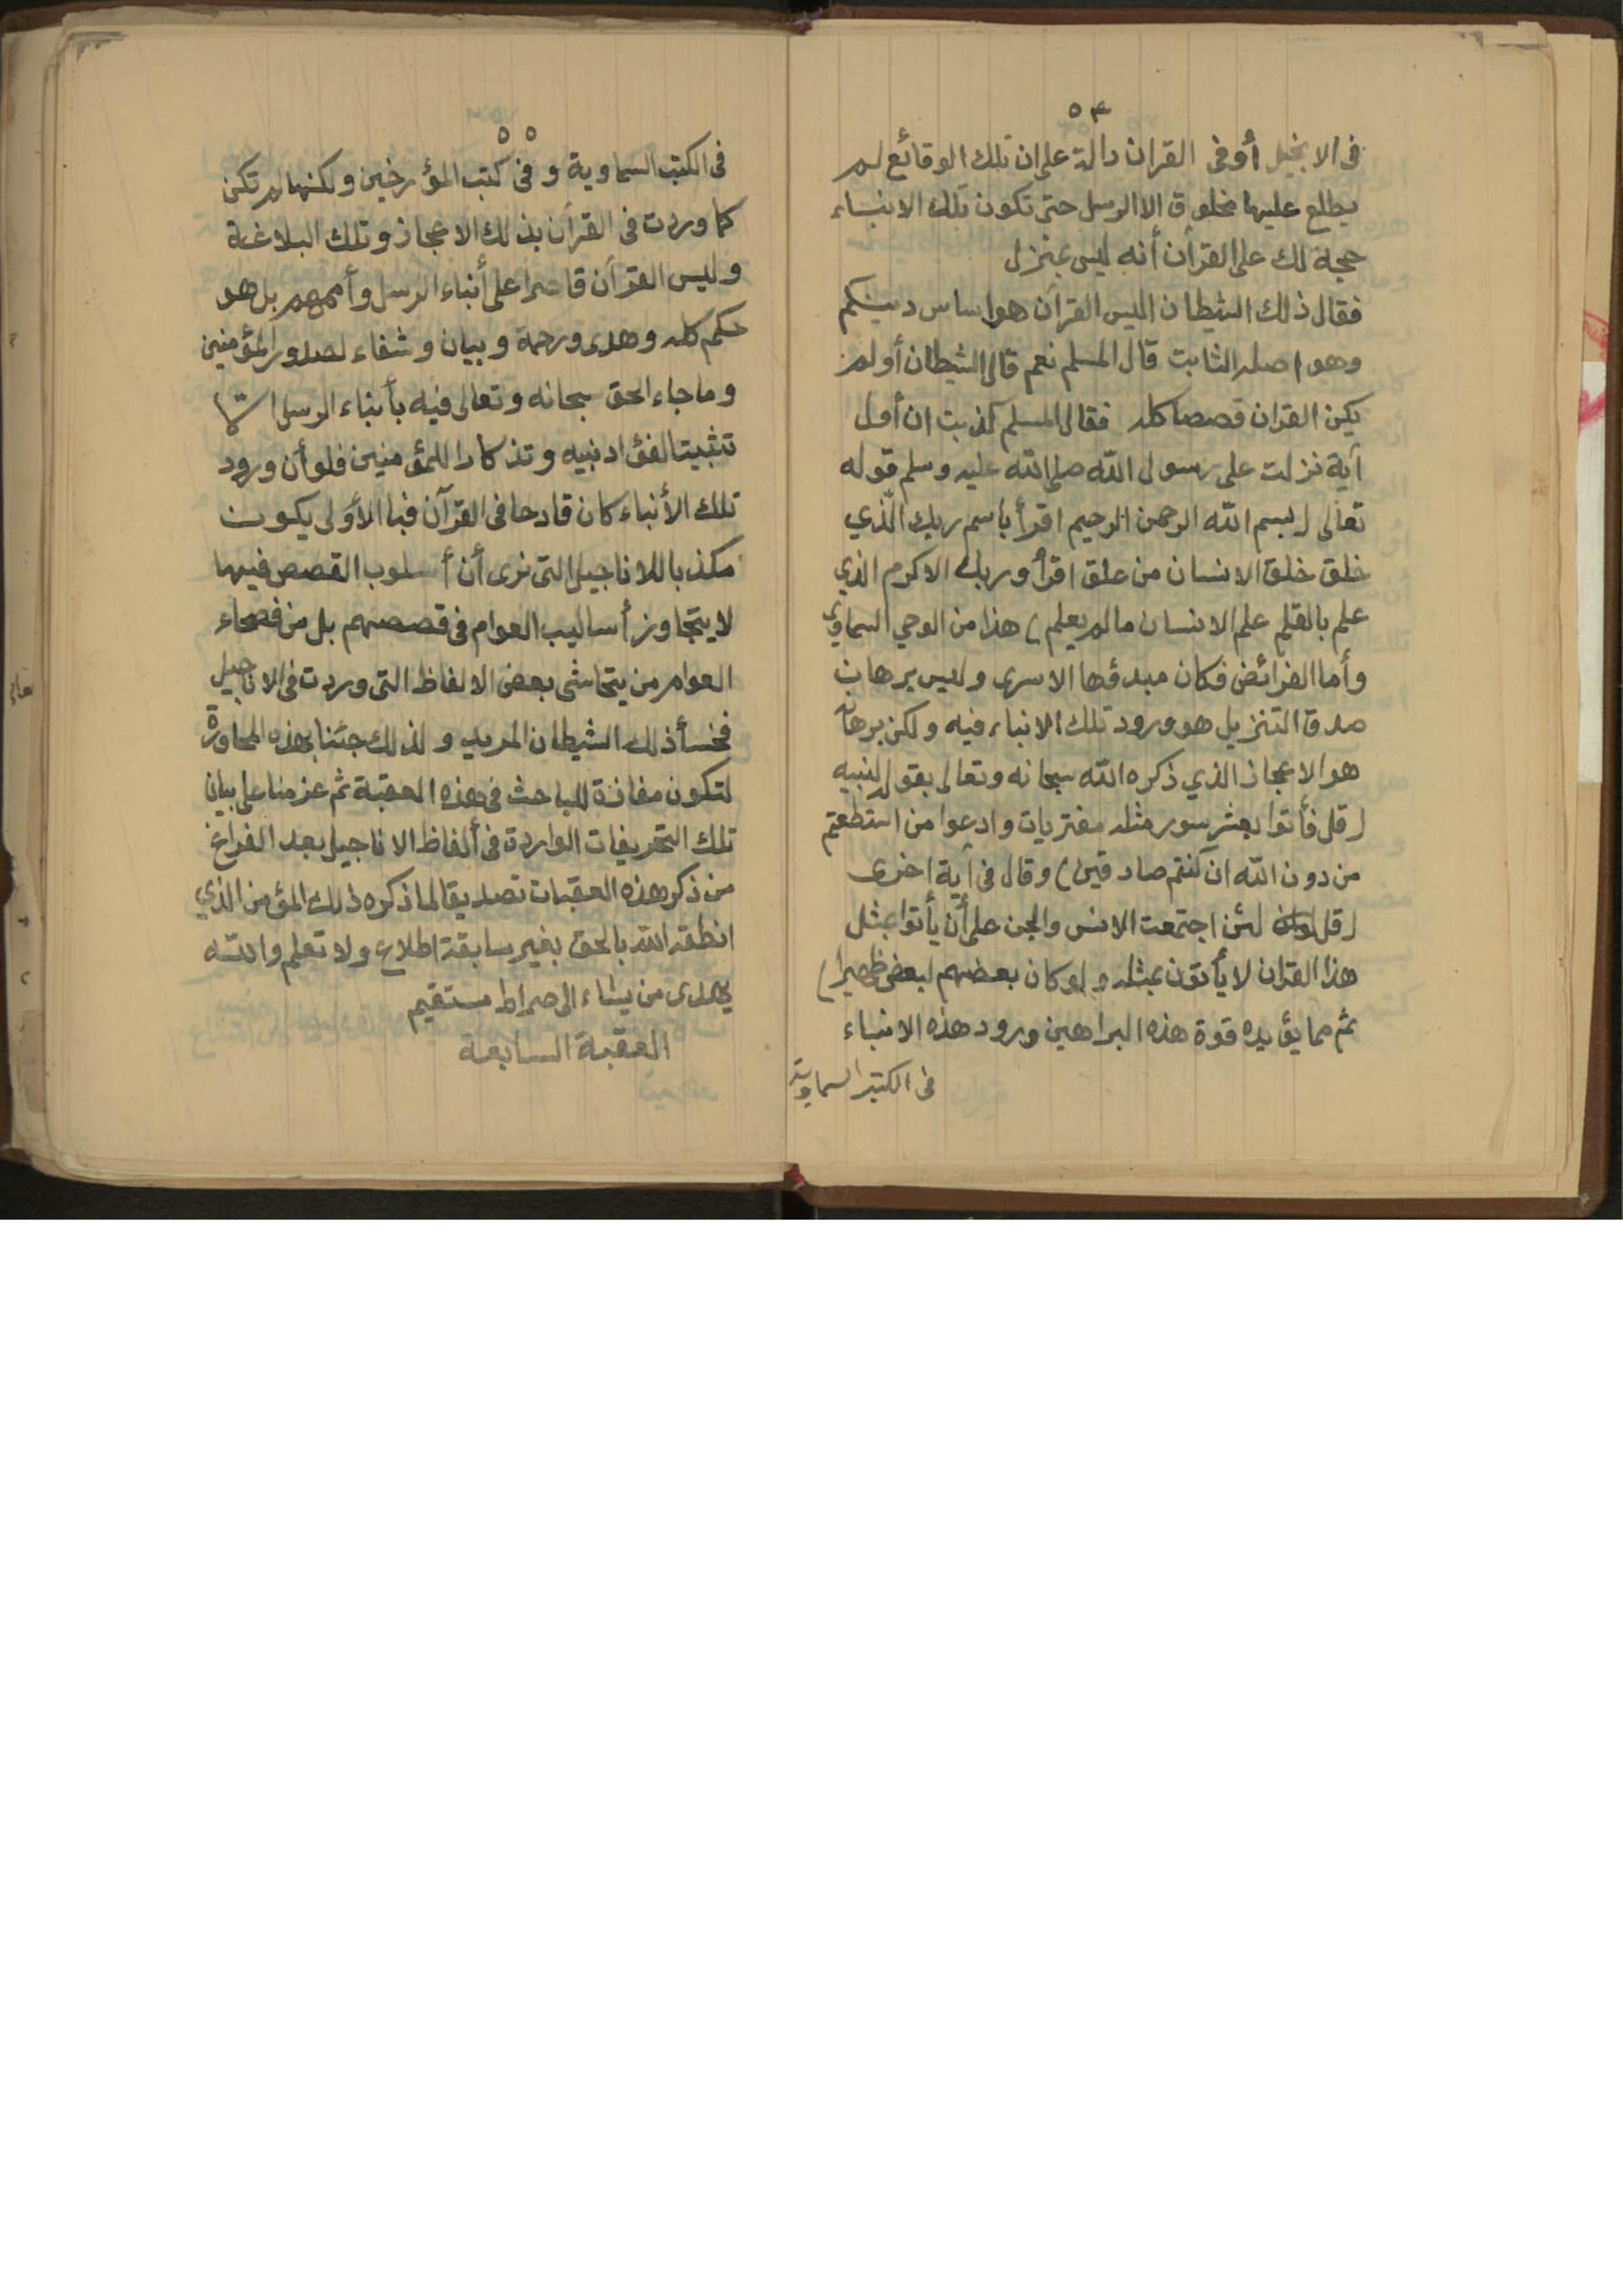 ٥٤
فى الانجيل أو فى القران دالة على ان تلك الوقائع لم
يطلع عليها مخلوق الا الرسل حتى تكون تلك الانباء
حجة لك على القرآن أنه ليس بمنزل
فقال ذلك الشيطان اليس القرآن هو اساس دينكم
وهو اصله الثابت قال المسلم نعم قال الشيطان أولم
يكن القران قصصا كله فقال المسلم كذبت ان أول
آية نزلت على رسول الله صلى الله عليه وسلم قوله
تعالى (بسم الله الرحمن الرحيم اقرأ باسم ربك الذي
خلق خلق الانسان من علق اقرأ وربك الاكرم الذي
علم بالقلم علم الانسان ما لم يعلم) هذا من الوحي السماوى
وأما الفرائض فكان مبدؤها الاسرى وليس برهان
صدق التنزيل هو ورود تلك الانباء فيه ولكن برهانه
هو الاعجاز الذي ذكره الله سبحانه وتعالى بقوله لنبيه
(قل فأتوا بعشر سور مثله مفتريات وادعوا من استطعتم
من دون الله ان كنتم صادقين) وقال فى آية اخرى
(قل لئن اجتمعت الانس والجن على أن يأتوا بمثل
هذا القران لا يأتون بمثله ولو كان بعضهم لبعض ظهيرا)
ثم مما يؤيده قوة هذه البراهين ورود هذه الانباء
فى الكتب السماوية
٥٥
فى الكتب السماوية وفى كتب المؤرخين ولكنها لم تكن
كما وردت فى القرآن بذلك الاعجاز وتلك البلاغة
وليس القرآن قاصرا على أنباء الرسل وأممهم بل هو
حكم كله وهدى ورحمة وبيان وشفاء لصدور المؤمنين
وما جاء الحق سبحانه وتعالى فيه بأنباء الرسل الا
تثبيتا لفؤاد نبيه وتذكارا للمؤمنين فلو أن ورود
تلك الأنباء كان قادحا فى القرآن فبالأولى يكون
مكذبا للاناجيل التى نرى أن أسلوب القصص فيها
لا يتجاوز أساليب العوام فى قصصهم بل من فصحاء
العوام من يتحاشى بعض الالفاظ التى وردت فى الاناجيل
فخسأ ذلك الشيطان المريد ولذلك جئنا بهذه المحاورة
لتكون مفازة للباحث فى هذه العقبة ثم عزمنا على بيان
تلك التحريفات الواردة فى ألفاظ الاناجيل بعد الفراغ
من ذكر هذه العقبات تصديقا لما ذكره ذلك المؤمن الذي
انطقه الله بالحق بغير سابقة اطلاع ولا تعلم والله
يهدى من يشاء الى صراط مستقيم
العقبة السابعة